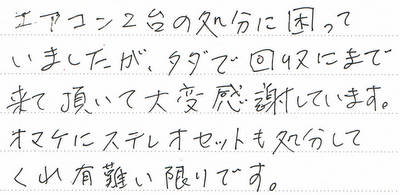 エアコン2台の処分に困って
いましたが、タダで回収にまで
来て頂いて大変感謝しています。
オマケにステレオセットも処分して
くれ有難い限りです。